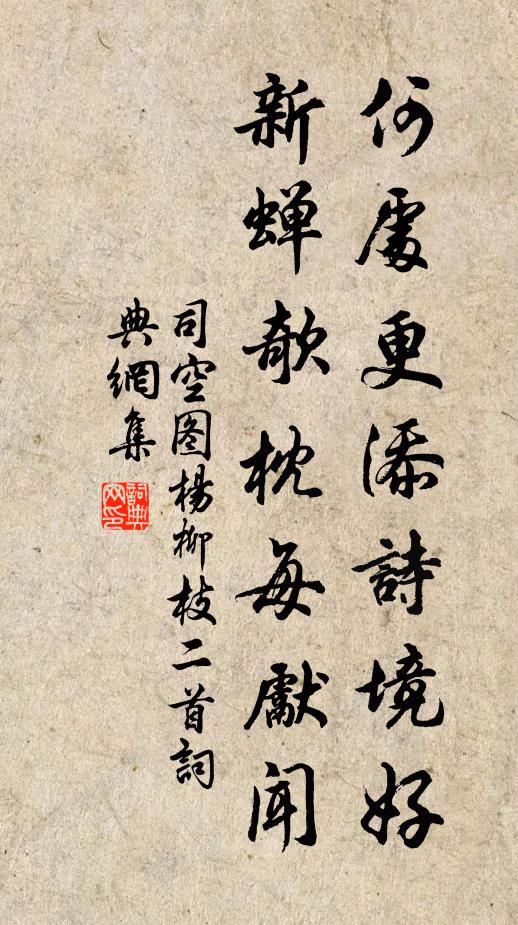 何處更添詩境好
新蟬欹枕每獻聞
司空图楊柳枝二首詞
典網集
詞典
网印